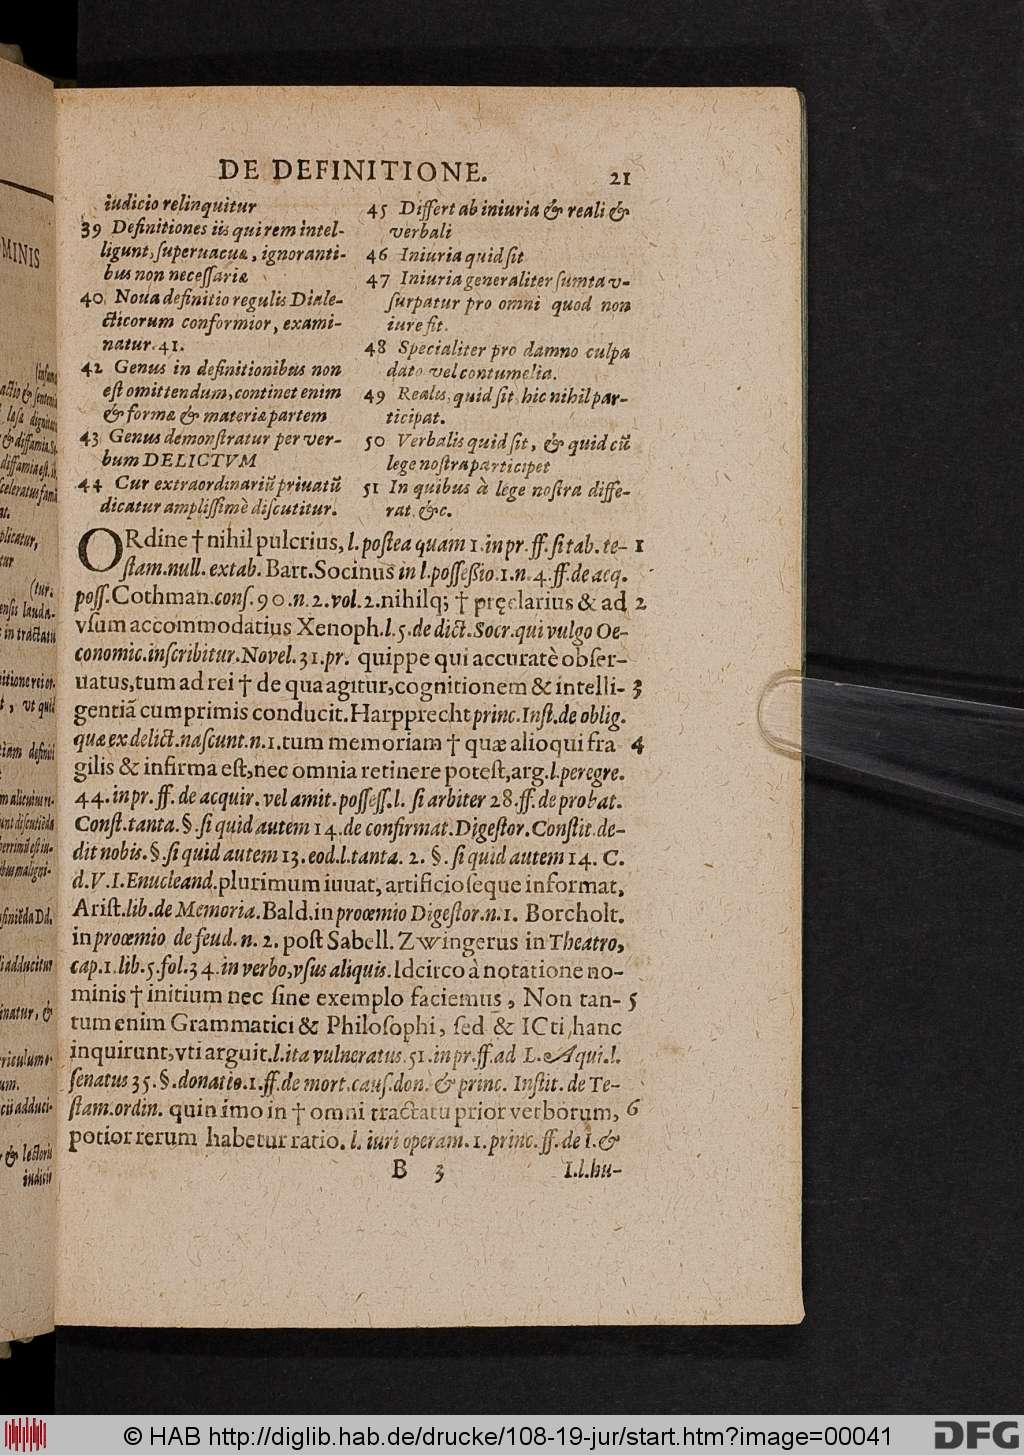 DE DEFINITIONE. 21
iudicio relinquitur
39 Definitiones iis qui rem intel-
ligunt, ſuperuacuæ, ignoranti-
bus non neceſſariæ
40 Noua definitio regulis Diale-
cticorum conformior, exami-
natur. 41.
42 Genus in definitionibus non
eſt omittendum, continet enim
& formæ & materiæ partem
43 Genus demonſtratur per ver-
bum DELICTVM
44 Cur extraordinariũ priuatũ
dicatur ampliſſimè diſcutitur.
45 Differt ab iniuria & reali &
verbali
46 Iniuria quid ſit
47 Iniuria generaliter ſumta v-
ſurpatur pro omni quod non
iure fit.
48 Specialiter pro damno culpa
dato vel contumelia.
49 Realis, quid ſit hic nihil par-
ticipat.
50 Verbalis quid ſit, & quid cũ
lege noſtra participet
51 In quibus à lege noſtra diffe-
rat. &c.
ORdine † nihil pulcrius, l. poſtea quam 1. in pr. ff. ſi tab. te- 1
ſtam. null. extab. Bart. Socinus in l. poſſeßio. 1. n. 4. ff. de acq.
poſſ. Cothman. conſ. 90. n. 2. vol. 2. nihilq; † pręclarius & ad 2
vſum accommodatius Xenoph. l. 5. de dict. Socr. qui vulgo Oe-
conomic. inſcribitur. Novel. 31. pr. quippe qui accuratè obſer-
uatus, tum ad rei † de qua agitur, cognitionem & intelli- 3
gentiã cumprimis conducit. Harpprecht princ. Inſt. de oblig.
quæ ex delict. naſcunt. n. 1. tum memoriam † quæ alioqui fra 4
gilis & infirma eſt, nec omnia retinere poteſt, arg. l. peregre.
44. in pr. ff. de acquir. vel amit. poſſeſſ. l. ſi arbiter 28. ff. de probat.
Conſt. tanta. §. ſi quid autem 14. de confirmat. Digeſtor. Conſtit. de-
dit nobis. §. ſi quid autem 13. eod. l. tanta. 2. §. ſi quid autem 14. C.
d. V. I. Enucleand. plurimum iuuat, artificioſeque informat,
Ariſt. lib. de Memoria. Bald. in proœmio Digeſtor. n. 1. Borcholt.
in proœmio de feud. n. 2. poſt Sabell. Zwingerus in Theatro,
cap. 1. lib. 5. fol. 34. in verbo, vſus aliquis. Idcirco à notatione no-
minis † initium nec ſine exemplo faciemus, Non tan- 5
tum enim Grammatici & Philoſophi, ſed & ICti hanc
inquirunt, vti arguit. l. ita vulneratus. 51. in pr. ff. ad L. Aqui. l.
ſenatus 35. §. donatio. 1. ff. de mort. cauſ. don. & princ. Inſtit. de Te-
ſtam. ordin. quin imo in † omni tractatu prior verborum, 6
potior rerum habetur ratio. l. iuri operam. 1. princ. ff. de i. &
B 3 I. l. hu-
© HAB http://diglib.hab.de/drucke/108-19-jur/start.htm?image=00041
DFG